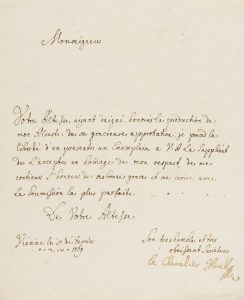 Monseigneur
Votre Altesse ayant daigné honorer la protection de
mon Alceste de sa gracieuse approbation, je prend la
liberté d'en presenter un Exemplaire a V:A La Suppliant
de L'accepter en homage de mon respect, de me
continuer L'honneur de ses bonnes graces et me croire avec
la Soumission la plus parfaite.
De Votre Altesse.
Vienne le
1769
Son tres humble et tres
obeissant Serviteur
le Chevalier Gluck